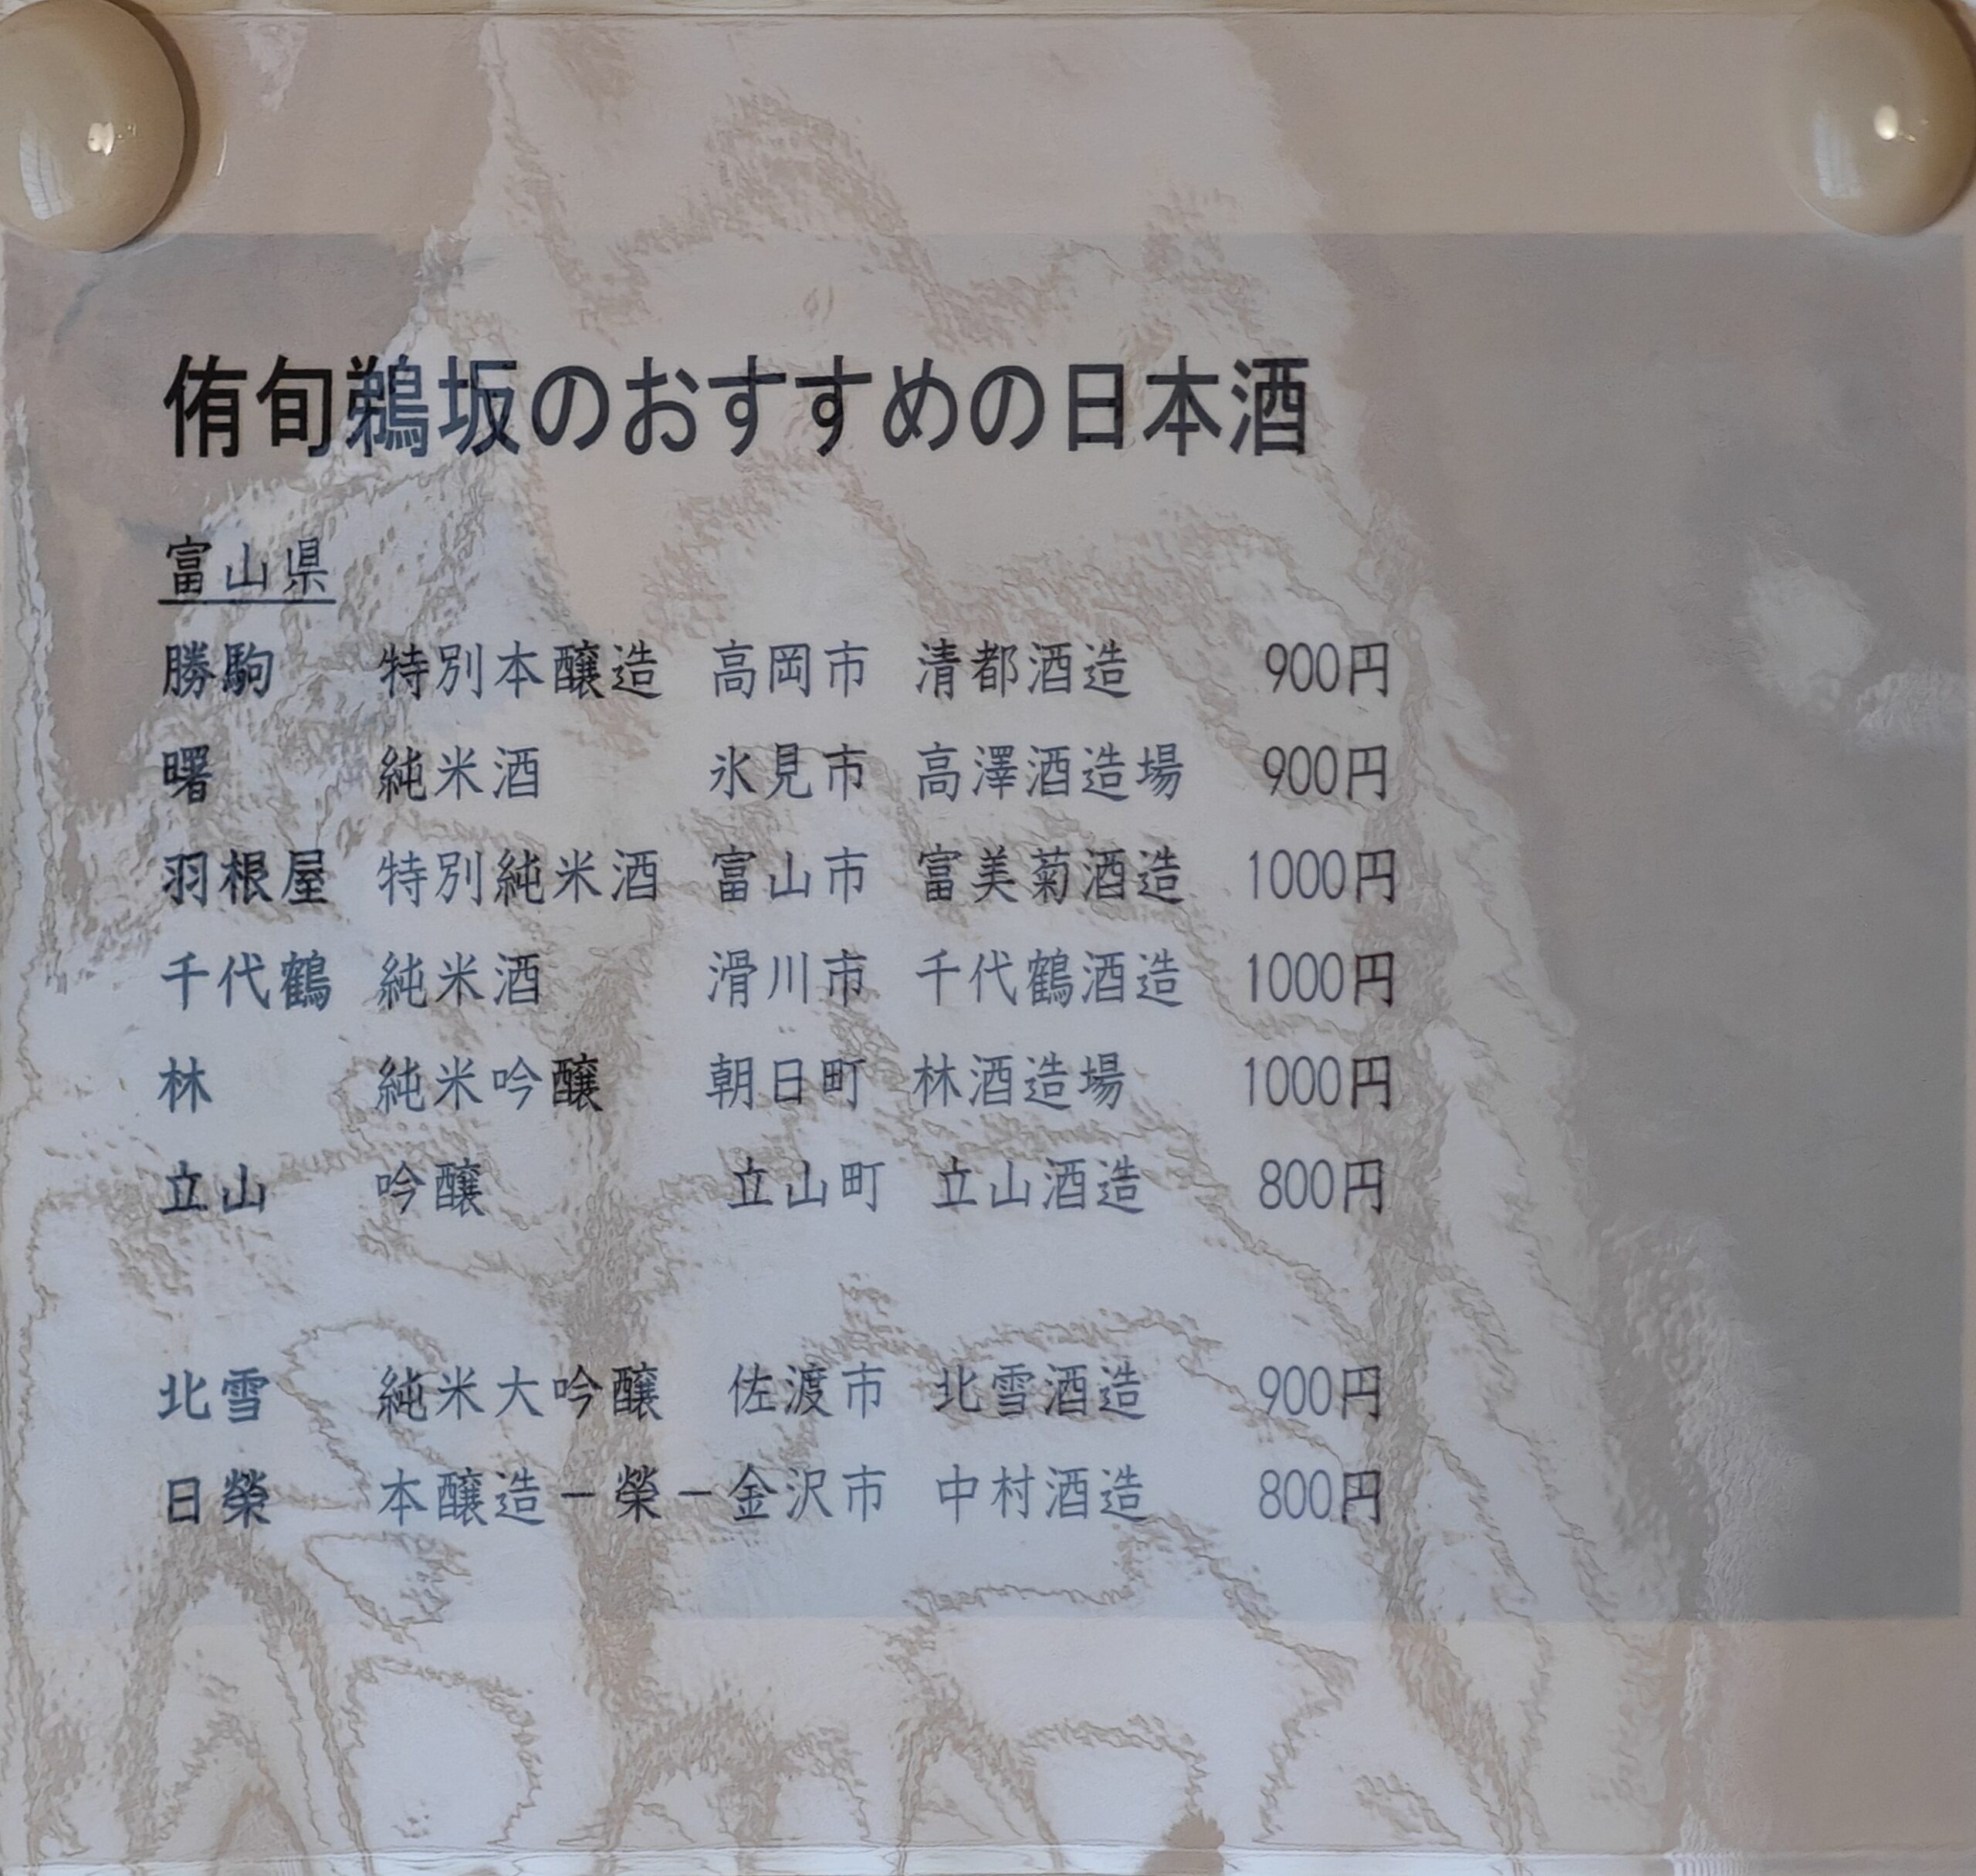 侑旬鵜坂のおすすめの日本酒
富山県
勝駒 特別本醸造 高岡市 清都酒造 900円
曙 純米酒 氷見市 高澤酒造場 900円
羽根屋 特別純米酒 富山市 富美菊酒造 1000円
千代鶴 純米酒 滑川市 千代鶴酒造 1000円
林 純米吟醸 朝日町 林酒造場 1000円
立山 吟醸 立山町 立山酒造 800円
北雪 純米大吟醸 佐渡市 北雪酒造 900円
日榮 本醸造－榮－金沢市 中村酒造 800円